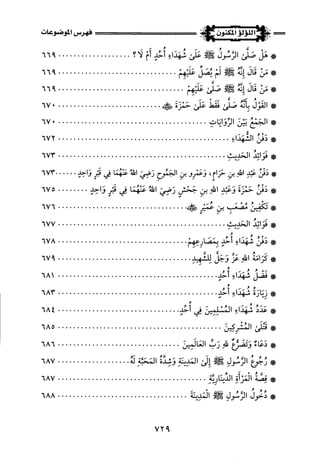 اللؤلؤ المكنون
فهرس الموضوعات
* هَلْ صَلَّى الرَّسُولُ ﷺ عَلَى شُهَدَاءِ أُحُدٍ أَمْ لَا؟ ٦٦٩
* مَنْ قَالَ إِنَّهُ ﷺ لَمْ يُصَلِّ عَلَيْهِمْ ٦٦٩
* مَنْ قَالَ إِنَّهُ ﷺ صَلَّى عَلَيْهِمْ ٦٦٩
* القَوْلُ بِأَنَّهُ صَلَّى فَقَطْ عَلَى حَمْزَةَ ﷺ ٦٧٠
* الجَمْعُ بَيْنَ الرِّوَايَاتِ ٦٧٠
* دَفْنُ الشُّهَدَاءِ ٦٧٢
* فَوَائِدُ الحَدِيثِ ٦٧٣
* دَفْنُ عَبْدِ اللهِ بنِ حَرَامٍ، وَعَمْرِو بنِ الجَمُوحِ رَضِيَ اللهُ عَنْهُمَا فِي قَبْرٍ وَاحِدٍ ٦٧٣
* دَفْنُ حَمْزَةَ وَعَبْدِ اللهِ بنِ جَحْشٍ رَضِيَ اللهُ عَنْهُمَا فِي قَبْرٍ وَاحِدٍ ٦٧٥
* تَكْفِينُ مُصْعَبِ بنِ عُمَيْرٍ ٦٧٦
* فَوَائِدُ الحَدِيثِ ٦٧٧
* دَفْنُ شُهَدَاءِ أُحُدٍ بِمَصَارِعِهِمْ ٦٧٨
* كَرَامَةُ اللهِ عَزَّ وَجَلَّ لِلشَّهِيدِ ٦٧٩
* فَضْلُ شُهَدَاءِ أُحُدٍ ٦٨١
* زِيَارَةُ شُهَدَاءِ أُحُدٍ ٦٨٣
* عَدَدُ شُهَدَاءِ المُسْلِمِينَ فِي أُحُدٍ ٦٨٤
* قَتْلَى المُشْرِكِينَ ٦٨٥
* دُعَاءٌ وَتَضَرُّعٌ للهِ رَبِّ العَالَمِينَ ٦٨٦
* رُجُوعُ الرَّسُولِ ﷺ إِلَى المَدِينَةِ وَشِدَّةُ المَحَبَّةِ لَهُ ٦٨٧
* قِصَّةُ الْمَرْأَةِ الدِّينَارِيَّةِ ٦٨٧
* دُخُولُ الرَّسُولِ ﷺ الْمَدِينَةَ ٦٨٨
٧٢٩